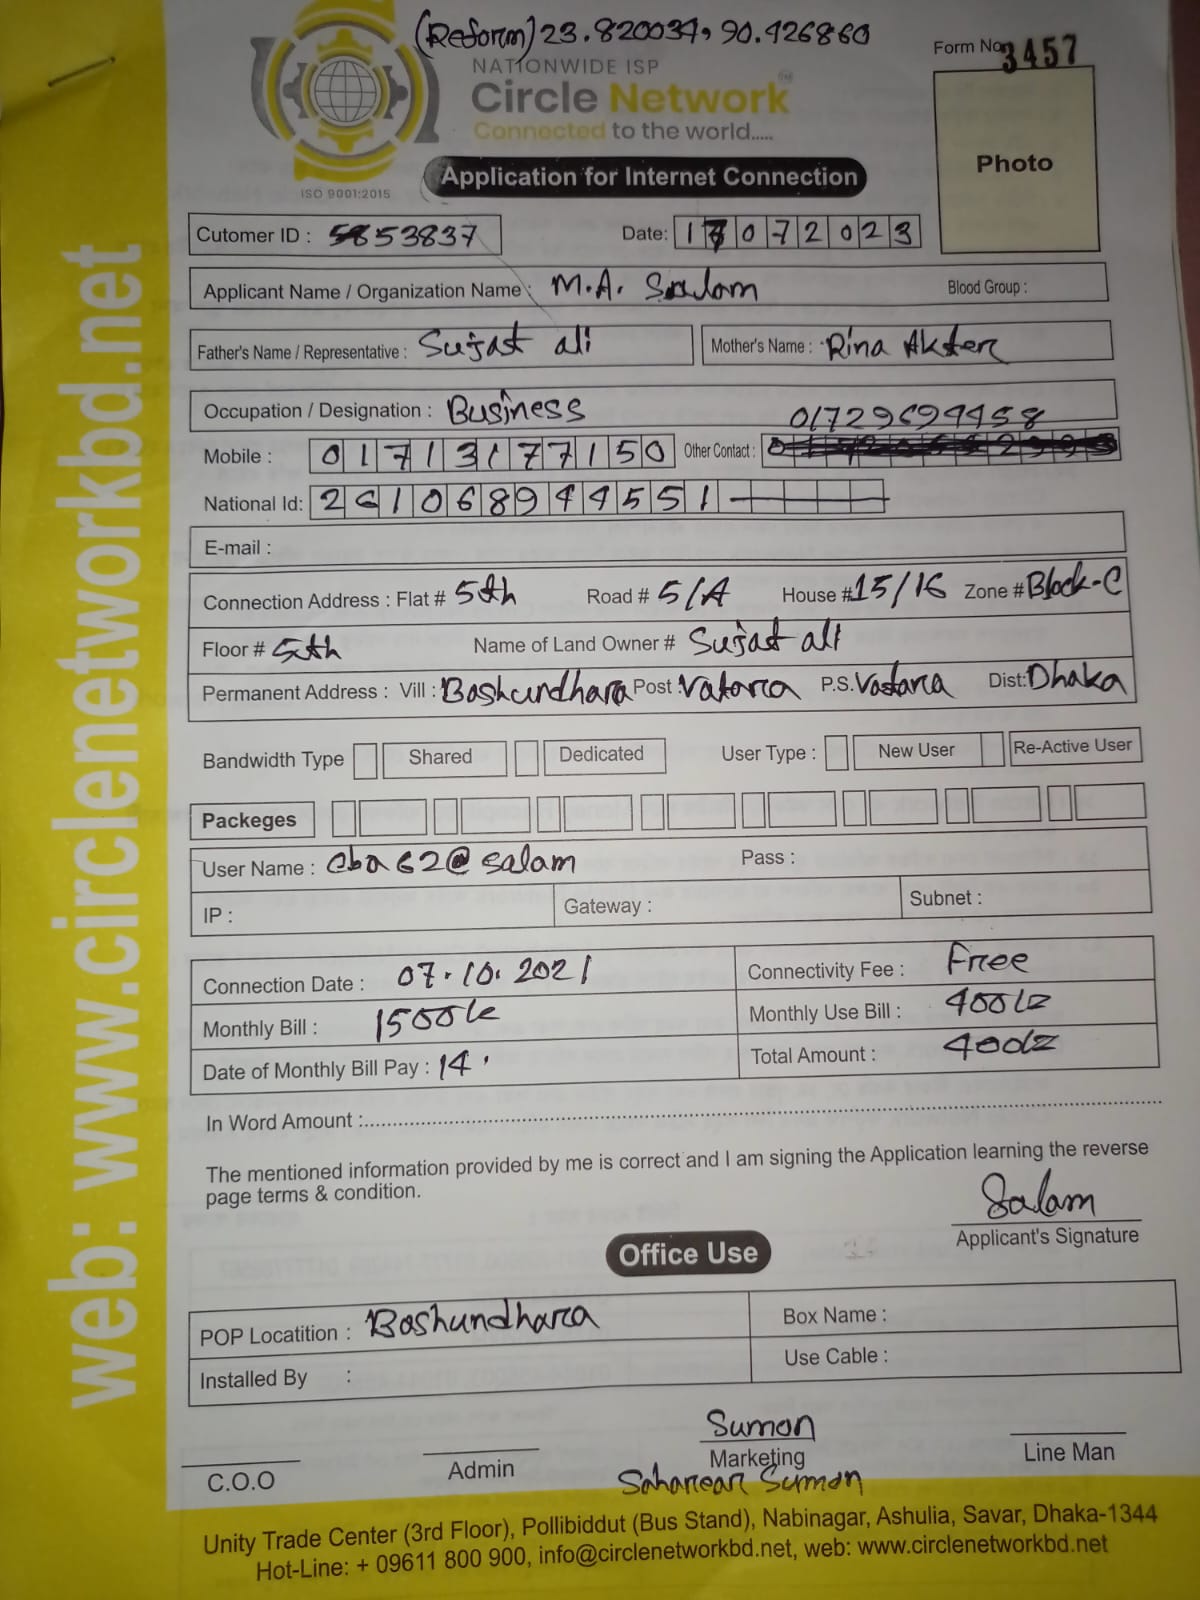 (Reform) 23.820037, 90.426860
Form No. 3457
NATIONWIDE ISP
Circle Network
Connected to the world.....
ISO 9001:2015
Photo
Application for Internet Connection
Cutomer ID : 5853837 Date: 17072023
Applicant Name / Organization Name : M.A. Salam Blood Group :
Father's Name / Representative : Sujat ali Mother's Name : Rina Akter
Occupation / Designation : Business
01729699458
Mobile : 01713177150 Other Contact :
National Id: 2610689449551
E-mail :
Connection Address : Flat # 5th Road # 5/A House # 15/16 Zone # Block-C
Floor # 5th Name of Land Owner # Sujat ali
Permanent Address : Vill : Bashundhara Post : Vatara P.S. Vatara Dist: Dhaka
Bandwidth Type Shared Dedicated User Type : New User Re-Active User
Packeges
User Name : cba62@salam Pass :
IP : Gateway : Subnet :
Connection Date : 07.10.2021 Connectivity Fee : Free
Monthly Bill : 1500tk Monthly Use Bill : 400tk
Date of Monthly Bill Pay : 14. Total Amount : 400tk
In Word Amount :
The mentioned information provided by me is correct and I am signing the Application learning the reverse
page terms & condition.
Salam
Applicant's Signature
Office Use
POP Locatition : Bashundhara Box Name :
Installed By : Use Cable :
Sumon
C.O.O Admin Marketing Line Man
Sahanear Sumon
Unity Trade Center (3rd Floor), Pollibiddut (Bus Stand), Nabinagar, Ashulia, Savar, Dhaka-1344
Hot-Line: + 09611 800 900, info@circlenetworkbd.net, web: www.circlenetworkbd.net
web: www.circlenetworkbd.net